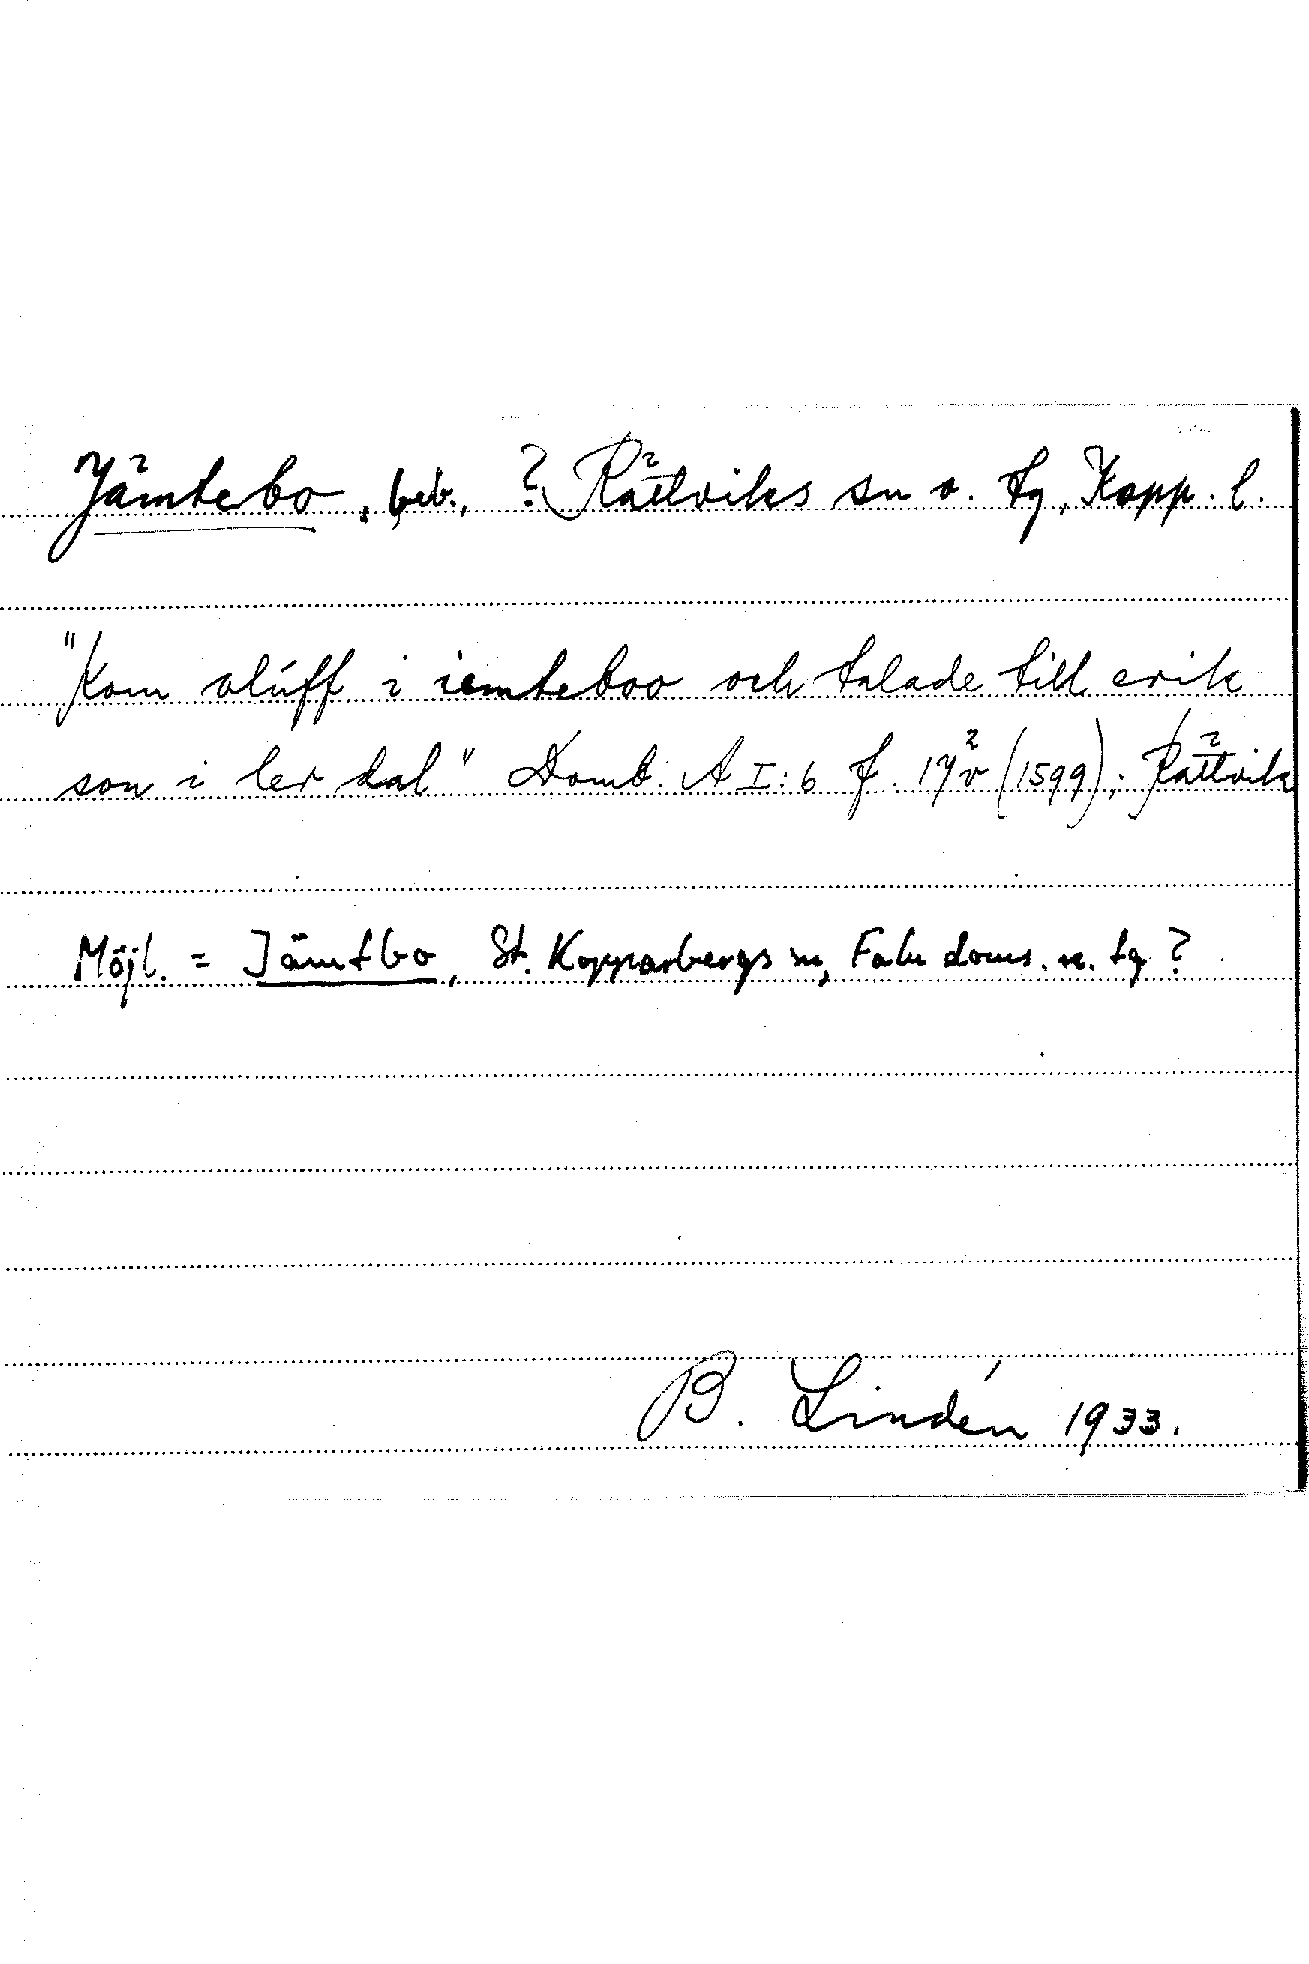 Jämtebo, beb., ? Rättviks sn o. tg, Kopp. l.
"Kom olúff i iemteboo och talade till erik
son i ler dal" Domb. A I:6 f. 17 v (1599); Rättvik
Möjl. = Jämtbo, St. Kopparbergs sn, Falu doms. n. tg?
B. Lindén 1933.